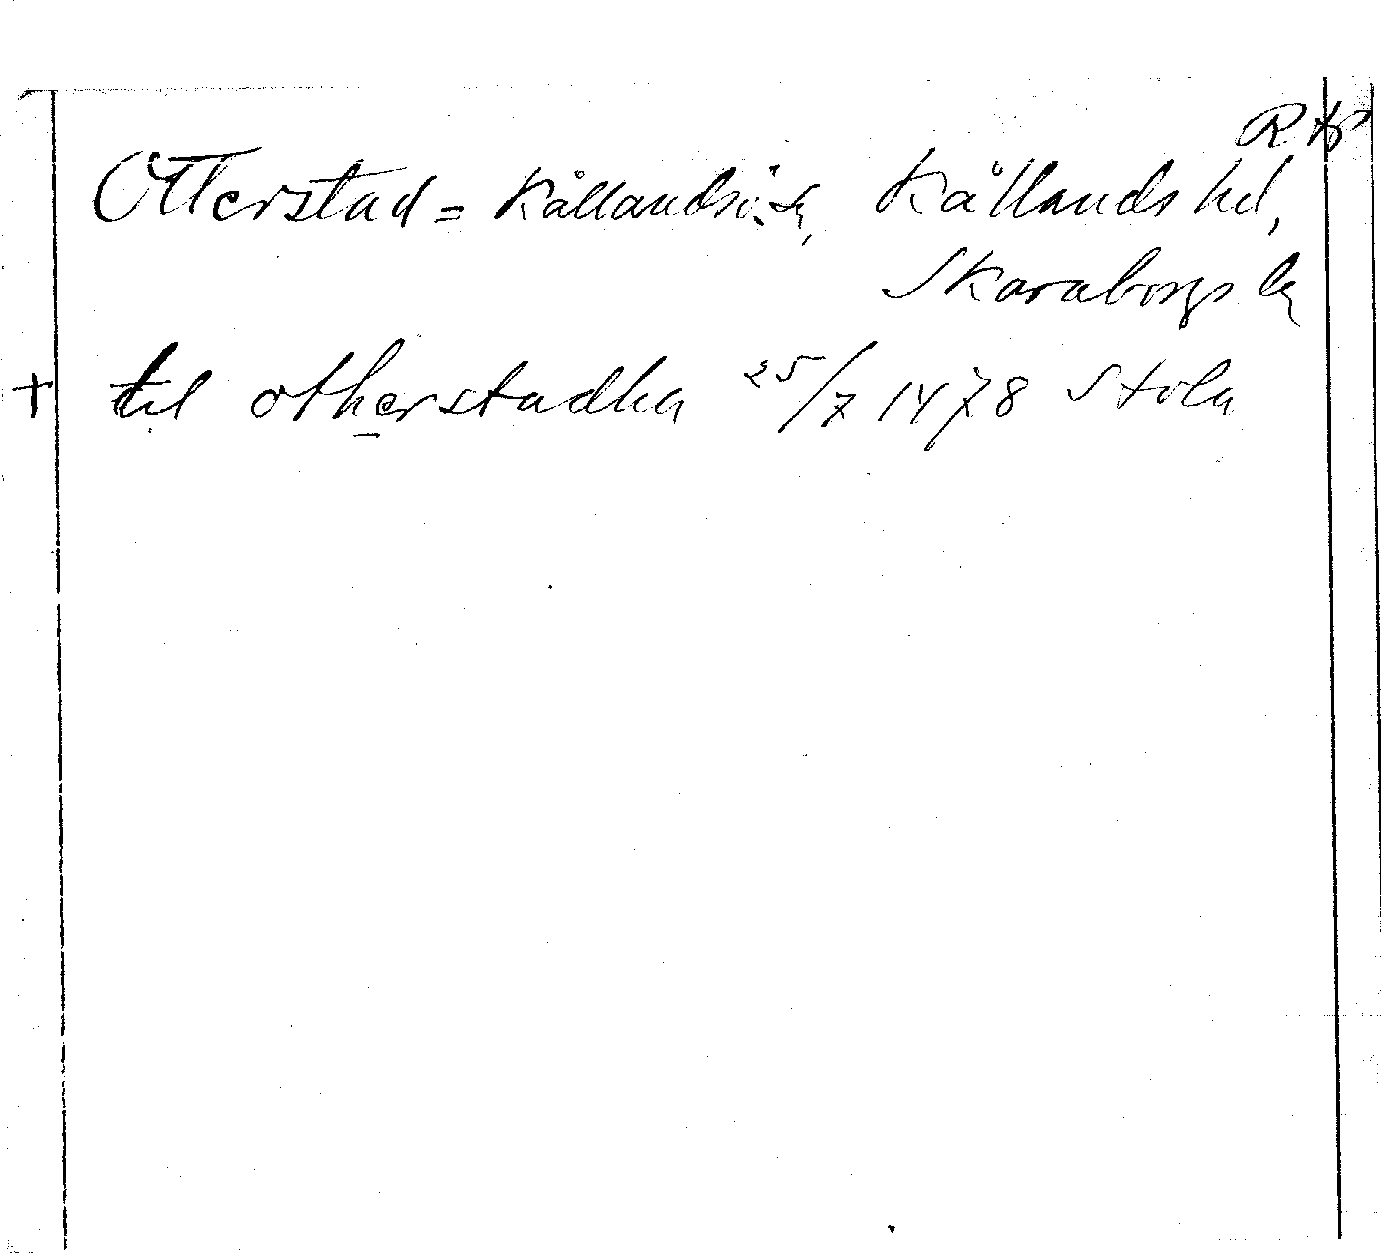 Rap
Otterstad = Kållandsö sn, Kållands hd,
Skaraborgs ln
+ til otherstadha 25/7 1478 Stola